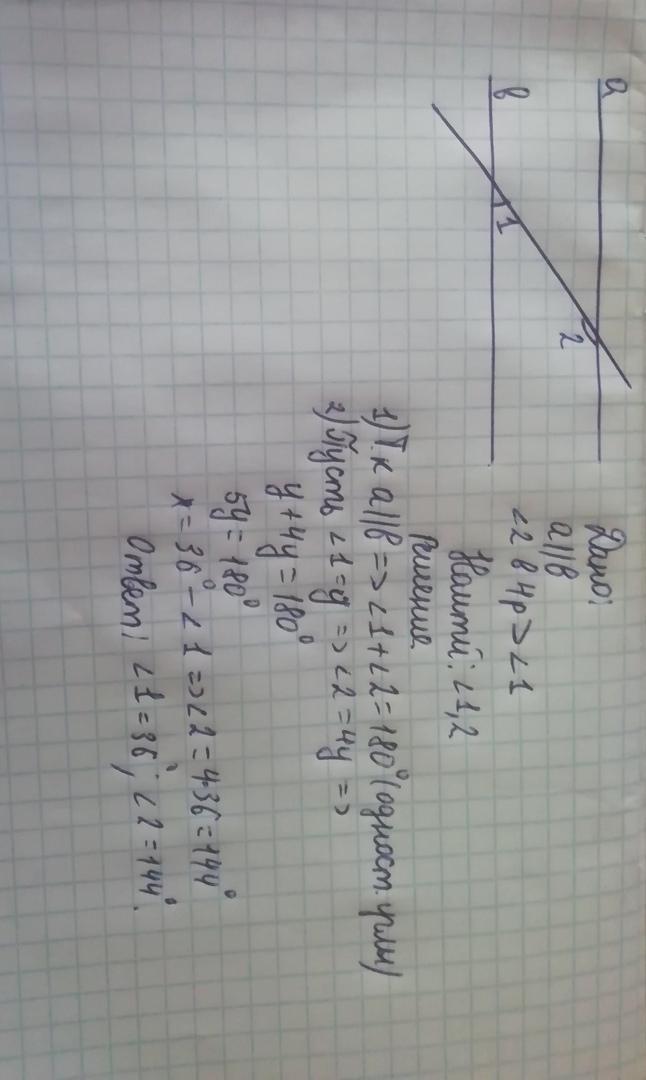 a
в
1
2
Дано:
a||в
∠2 в 4р > ∠1
Найти: ∠1,2
Решение
1) Т.к a||в => ∠1+∠2=180° (одност. углы)
2) Пусть ∠1=y => ∠2=4y =>
y+4y=180°
5y=180°
x=36° - ∠1 => ∠2=4·36=144°
Ответ: ∠1=36°; ∠2=144°.